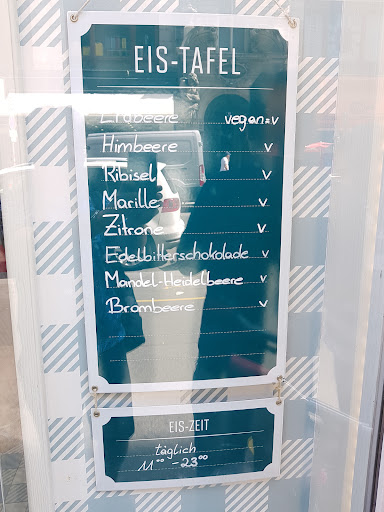 EIS-TAFEL
Erdbeere vegan=v
Himbeere v
Ribisel v
Marille v
Zitrone v
Edelbitterschokolade v
Mandel-Heidelbeere v
Brombeere v
EIS-ZEIT
täglich
11⁰⁰ - 23⁰⁰